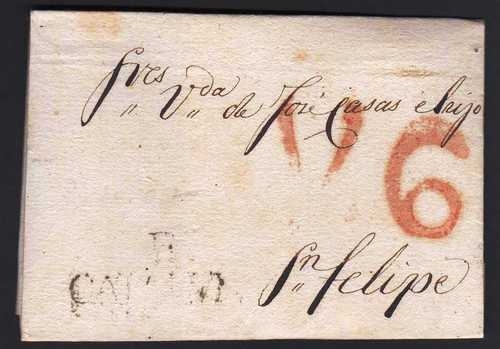 Srs Vda de José Casas é hijo
6
Sn Felipe